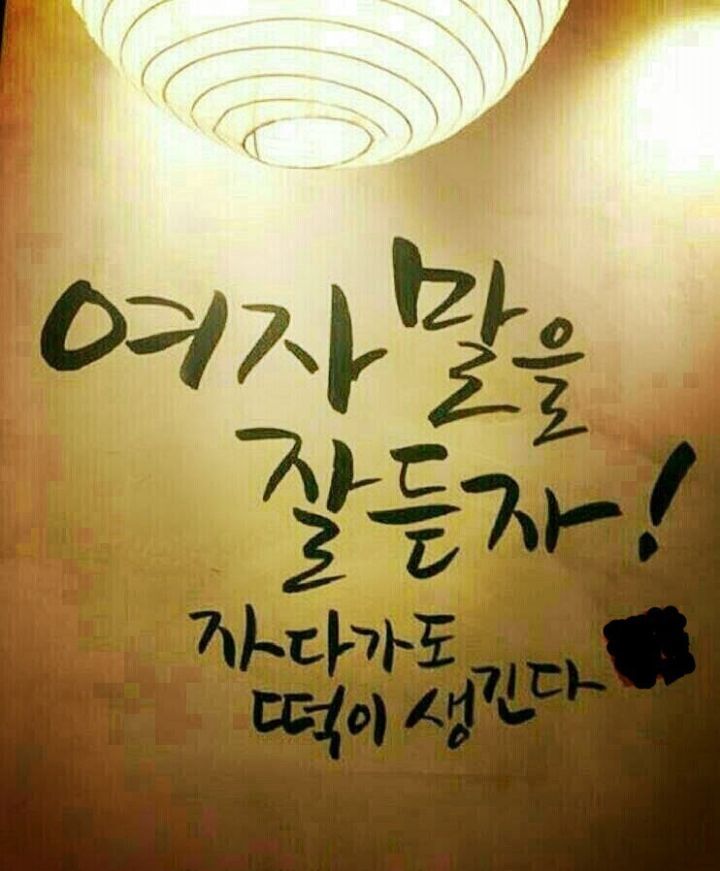 여자 말을
잘 듣자!
자다가도
떡이 생긴다